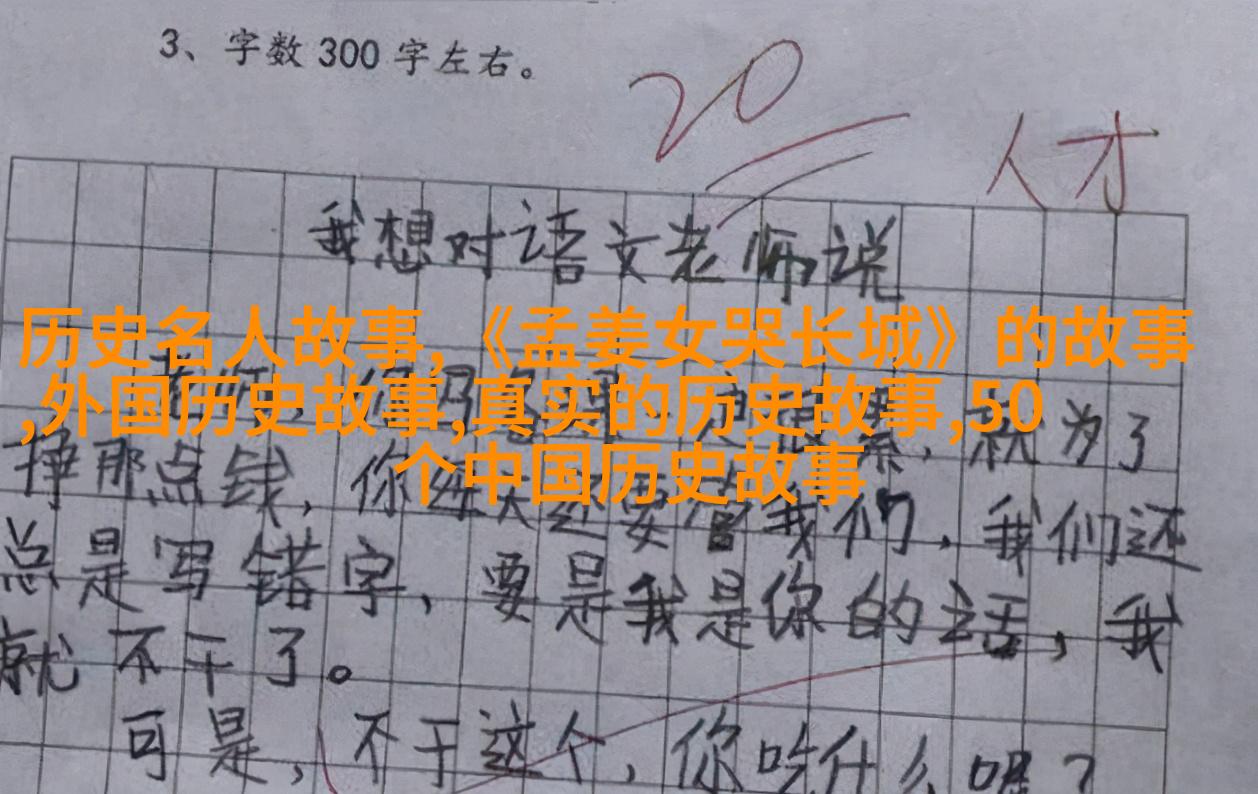 3、字数300字左右。
20
人才
我想对语文老师说
历史名人故事,《孟姜女哭长城》的故事
,外国历史故事,真实的历史故事,50
个中国历史故事
就为了
挣那点钱,你
要管我们,我们还
总是写错字,要是我是你的话,我
就不干了。
可是,不干这个,你吃什么呢?